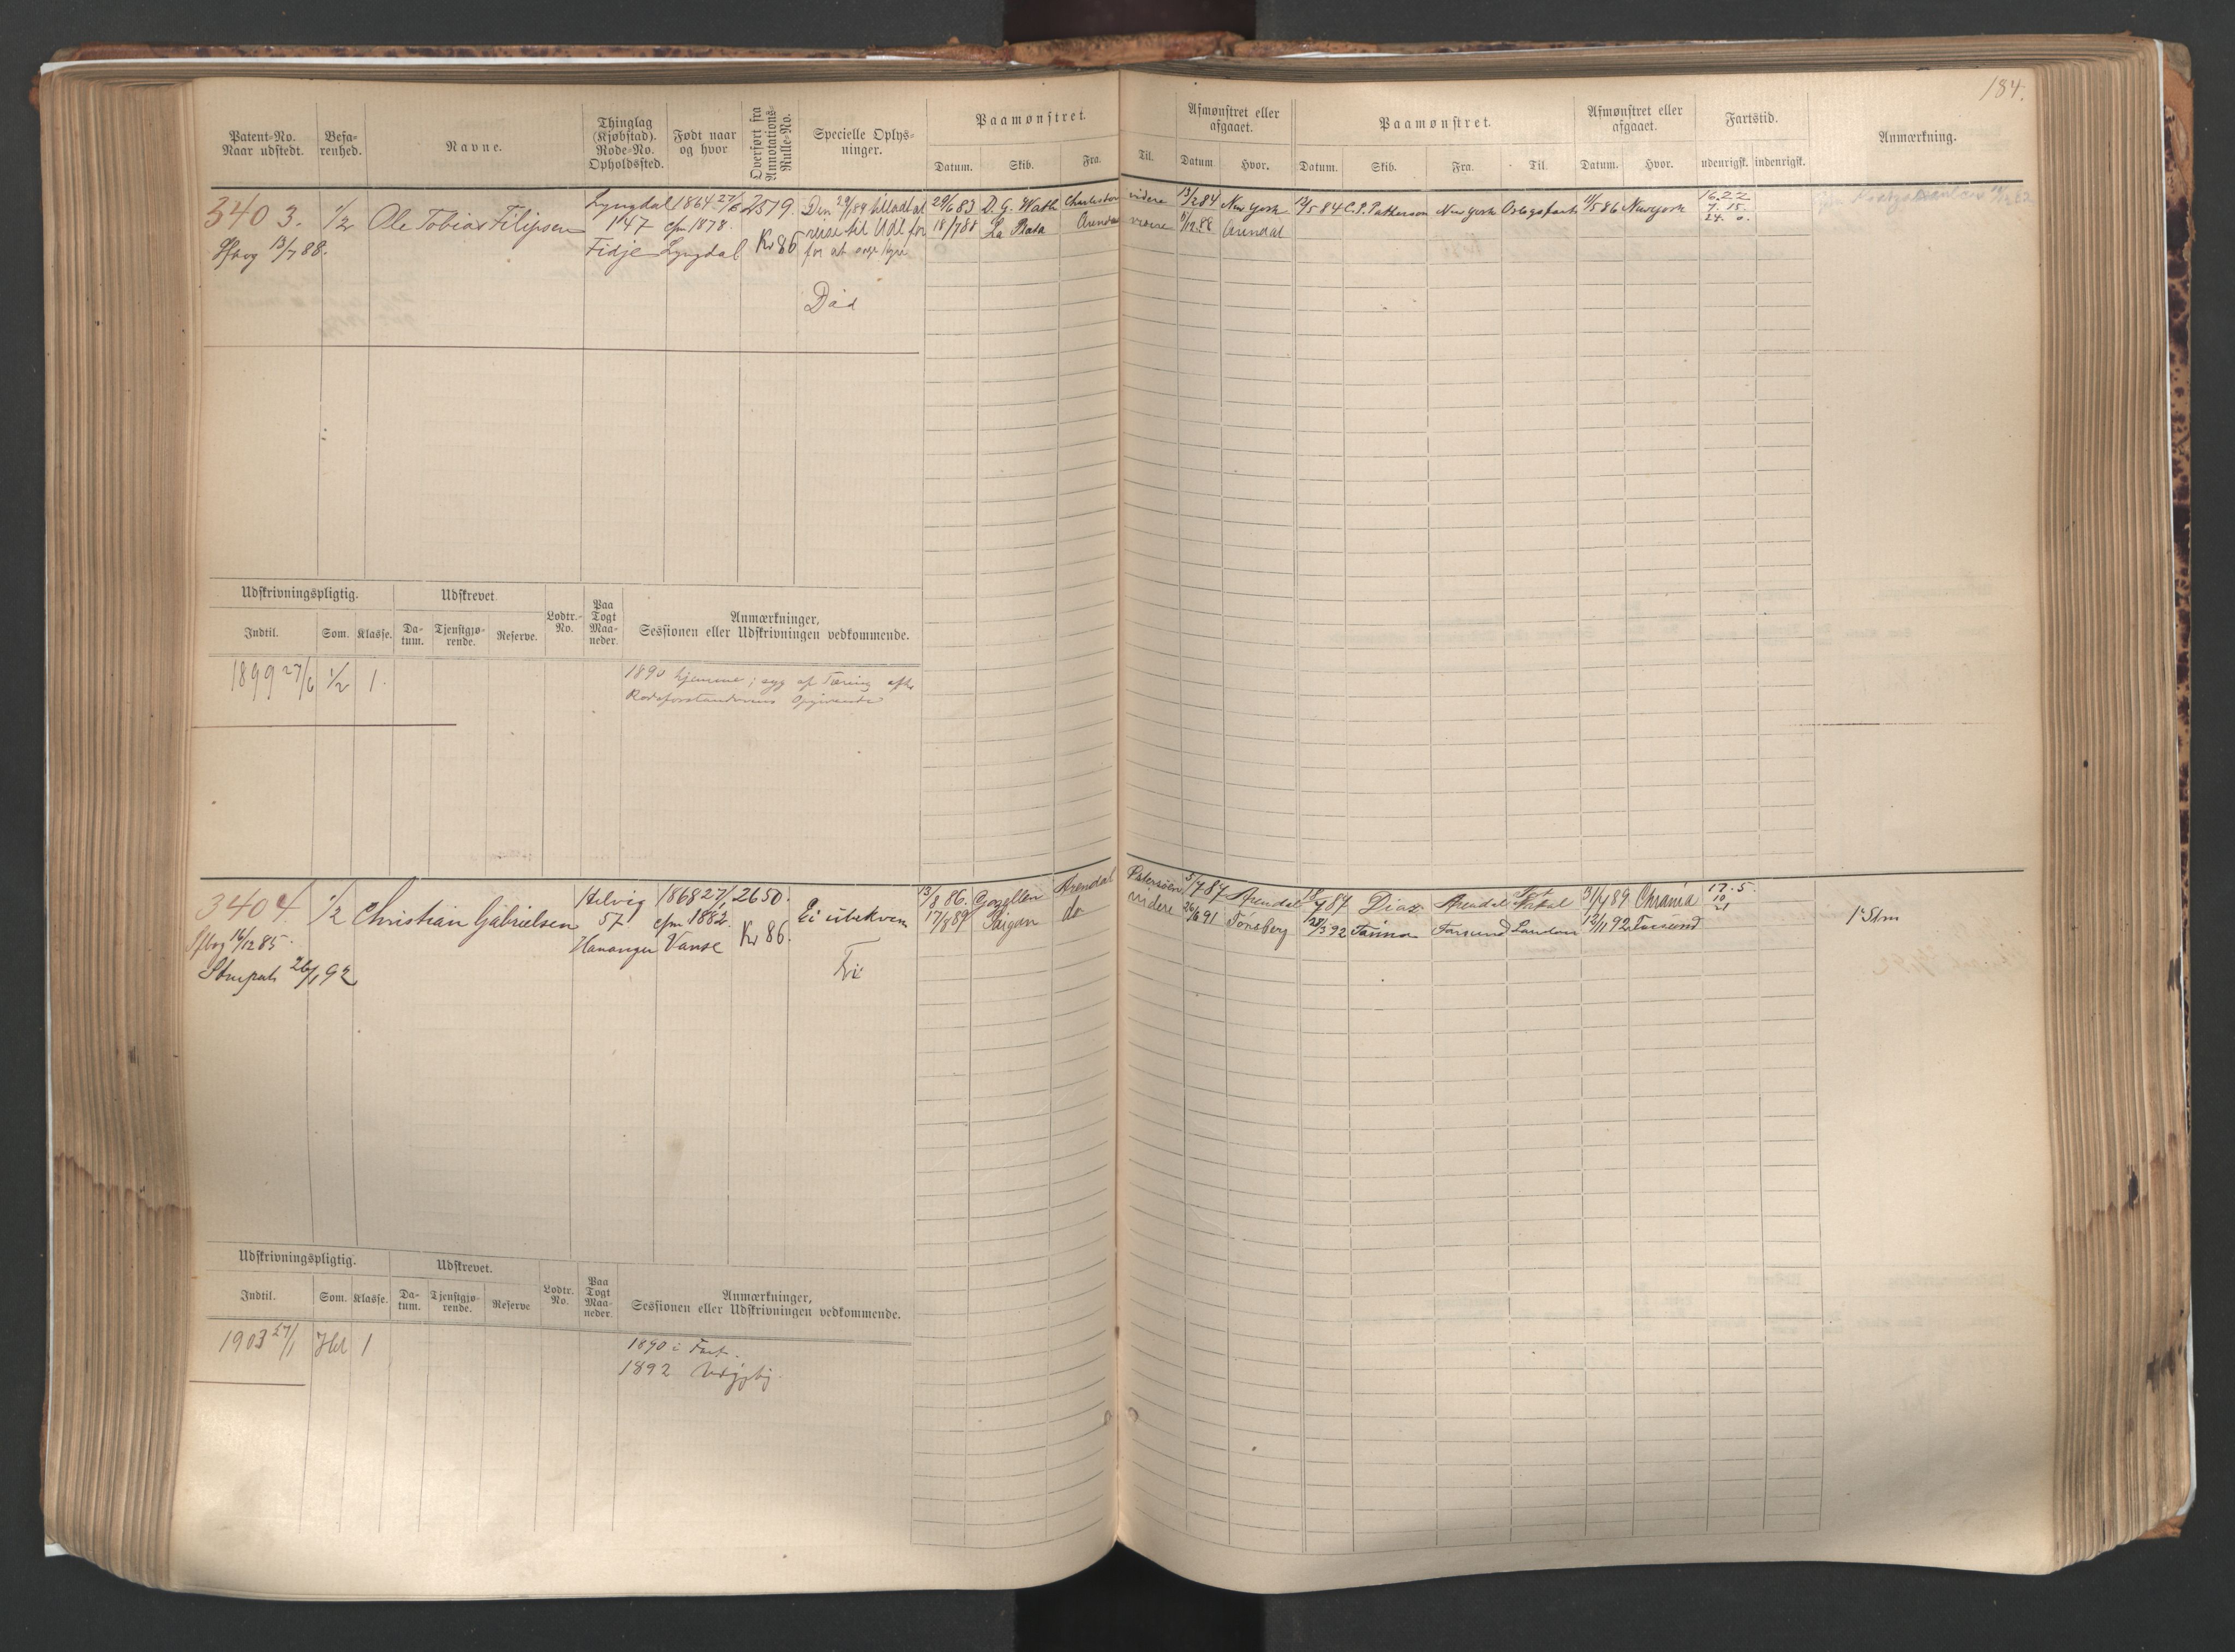 184.
Patent-No. Naar udstedt.
Befa-renhed.
Navne.
Thinglag (Kjøbstad). Rode-No. Opholdssted.
Født naar og hvor
Overført fra Annotations-Rulle-No.
Specielle Oplys-ninger.
Paamønstret.
Datum. Skib. Fra. Til.
Afmønstret eller afgaaet.
Datum. Hvor.
Paamønstret.
Datum. Skib. Fra. Til.
Afmønstret eller afgaaet.
Datum. Hvor.
Fartstid.
udenrigsk. indenrigsk.
Anmærkning.
3403. 1/2 Ole Tobias Filipsen Lyngdal 1864 27/6 2519.
147 cfm 1878.
Fidje Lyngdal Kr 86
Sfbog 13/7 88.
Den 29/1 89 tilladt at
reise til Udl for
for at søge Hyre
Død
29/6 83 D. G. Wath Charleston videre 13/2 84 New York 12/5 84 C. P. Patterson New York Ostogafarts 11/5 86 New York 16.22
18/7 88 La Plata Arendal videre 8/12 88 Arendal 7. 15.
24. 0.
Udskrivningspligtig.
Indtil. Som. Klasse.
Udskrevet.
Da-tum. Tjenstgjø-rende. Reserve.
Lodtr.-No.
Paa Togt Maa-neder.
Anmærkninger, Sessionen eller Udskrivningen vedkommende.
1899 27/6 1/2 1.
1890 hjemme; syg af Tæring efter
Rodeforstanderens Opgivende
3404 1/2 Christian Gabrielsen Helvig 1868 27/1 2650.
57 cfm 1882.
Hananger Vanse Kr 86.
Sfbog 16/12 85.
Stmpat 26/1 92
Ei ubekvem
Fri
13/8 86. Arendal Petersöen 5/7 87 Arendal 18/7 87 Dias Arendal 31/7 89 Chrania 17. 5.
17/8 89 do videre 24/6 91 Tønsberg 28/3 92 Farsund London 12/11 92 Farsund 10. 21
1ste Stm
Udskrivningspligtig.
Indtil. Som. Klasse.
Udskrevet.
Da-tum. Tjenstgjø-rende. Reserve
Lodtr. No.
Paa Togt Maa-neder.
Anmærkninger, Sessionen eller Udskrivningen vedkommende.
1903 27/1 Hel 1
1890 i Fart.
1892